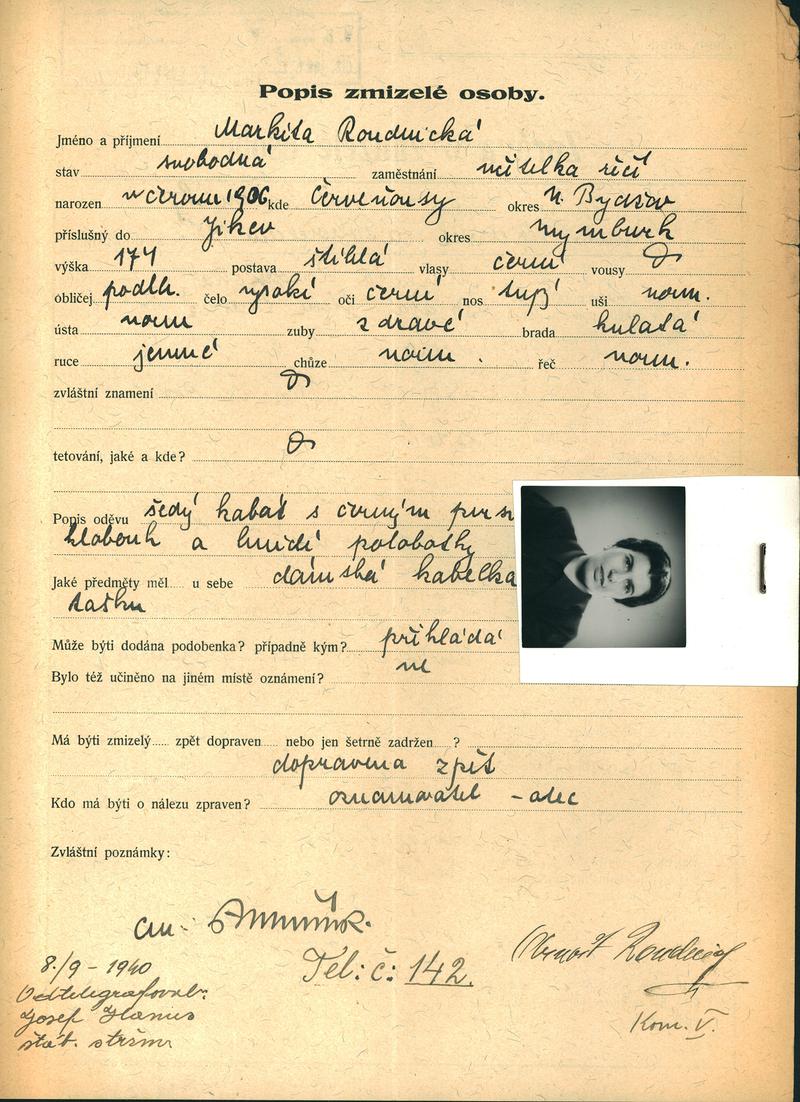 Popis zmizelé osoby.
Jméno a příjmení Markéta Roudnická
stav svobodná zaměstnání učitelka řečí
narozen v červnu 1906 kde Červeňousy okres N. Bydžov
příslušný do Jíkev okres Nymburk
výška 174 postava štíhlá vlasy černé vousy
obličej podlh. čelo vysoké oči černé nos tupý uši norm.
ústa norm zuby zdravé brada kulatá
ruce jemné chůze norm. řeč norm.
zvláštní znamení
tetování, jaké a kde?
Popis oděvu šedý kabát s černým
klobouk a hnědé polobotky
Jaké předměty měl..... u sebe dámská kabelka
tašku
Může býti dodána podobenka? případně kým? přikládá
Bylo též učiněno na jiném místě oznámení? ne
Má býti zmizelý..... zpět dopraven..... nebo jen šetrně zadržen ?
dopravena zpět
Kdo má býti o nálezu zpraven? oznamovatel - otec
Zvláštní poznámky:
Tel: č: 142.
8./9 - 1940
Odtelegrafoval:
Josef Hanus
štáb. stržm
Kom. V.